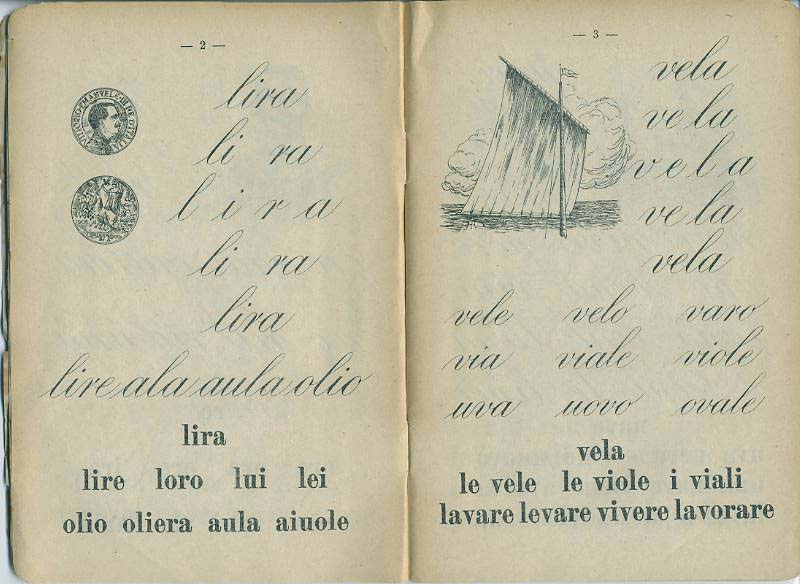 — 2 —
VITTORIO · EMANVELE · III · RE · D'ITALIA
lira
li ra
l i r a
li ra
lira
lire ala aula olio
lira
lire loro lui lei
olio oliera aula aiuole
— 3 —
vela
ve la
v e l a
ve la
vela
vele velo varo
via viale viole
uva uovo ovale
vela
le vele le viole i viali
lavare levare vivere lavorare